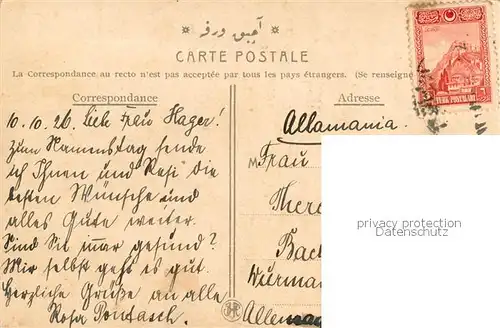 آچیق ورقه
CARTE POSTALE
La Correspondance au recto n'est pas acceptée par tous les pays étrangers. (Se renseigne
Correspondance
Adresse
10.10.26. Liebe Frau Hager!
Zum Namenstag sende
ich Ihnen und Resi die
besten Wünsche und
alles Gute weiter.
Sind Sie immer gesund?
Mir selbst geht es gut.
Herzliche Grüße an alle
Rosa Pontasch.
Allamania.
M Frau
There
Bac
Würm
Allema
privacy protection
Datenschutz
TÜRK POSTALARI
6